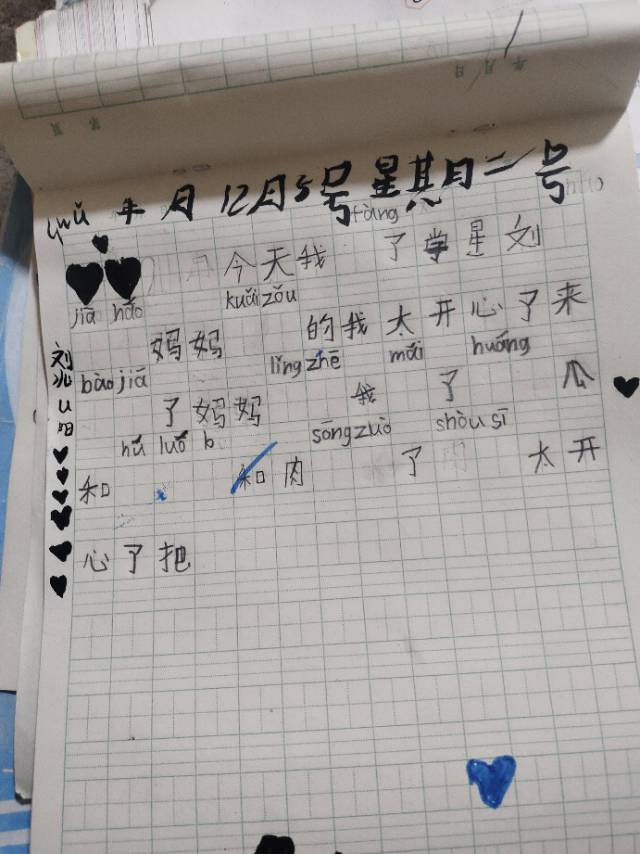 年月12月5号星其日二号
tàng
今天我 了学星刘
jiā hǎo kuāi zǒu
妈妈 的我太开心了来
bào jiā líng zhē mǎi huáng
了妈妈 我了 瓜
hú luó b sōng zuò shòu sī
和 和肉 了 太开
心了把